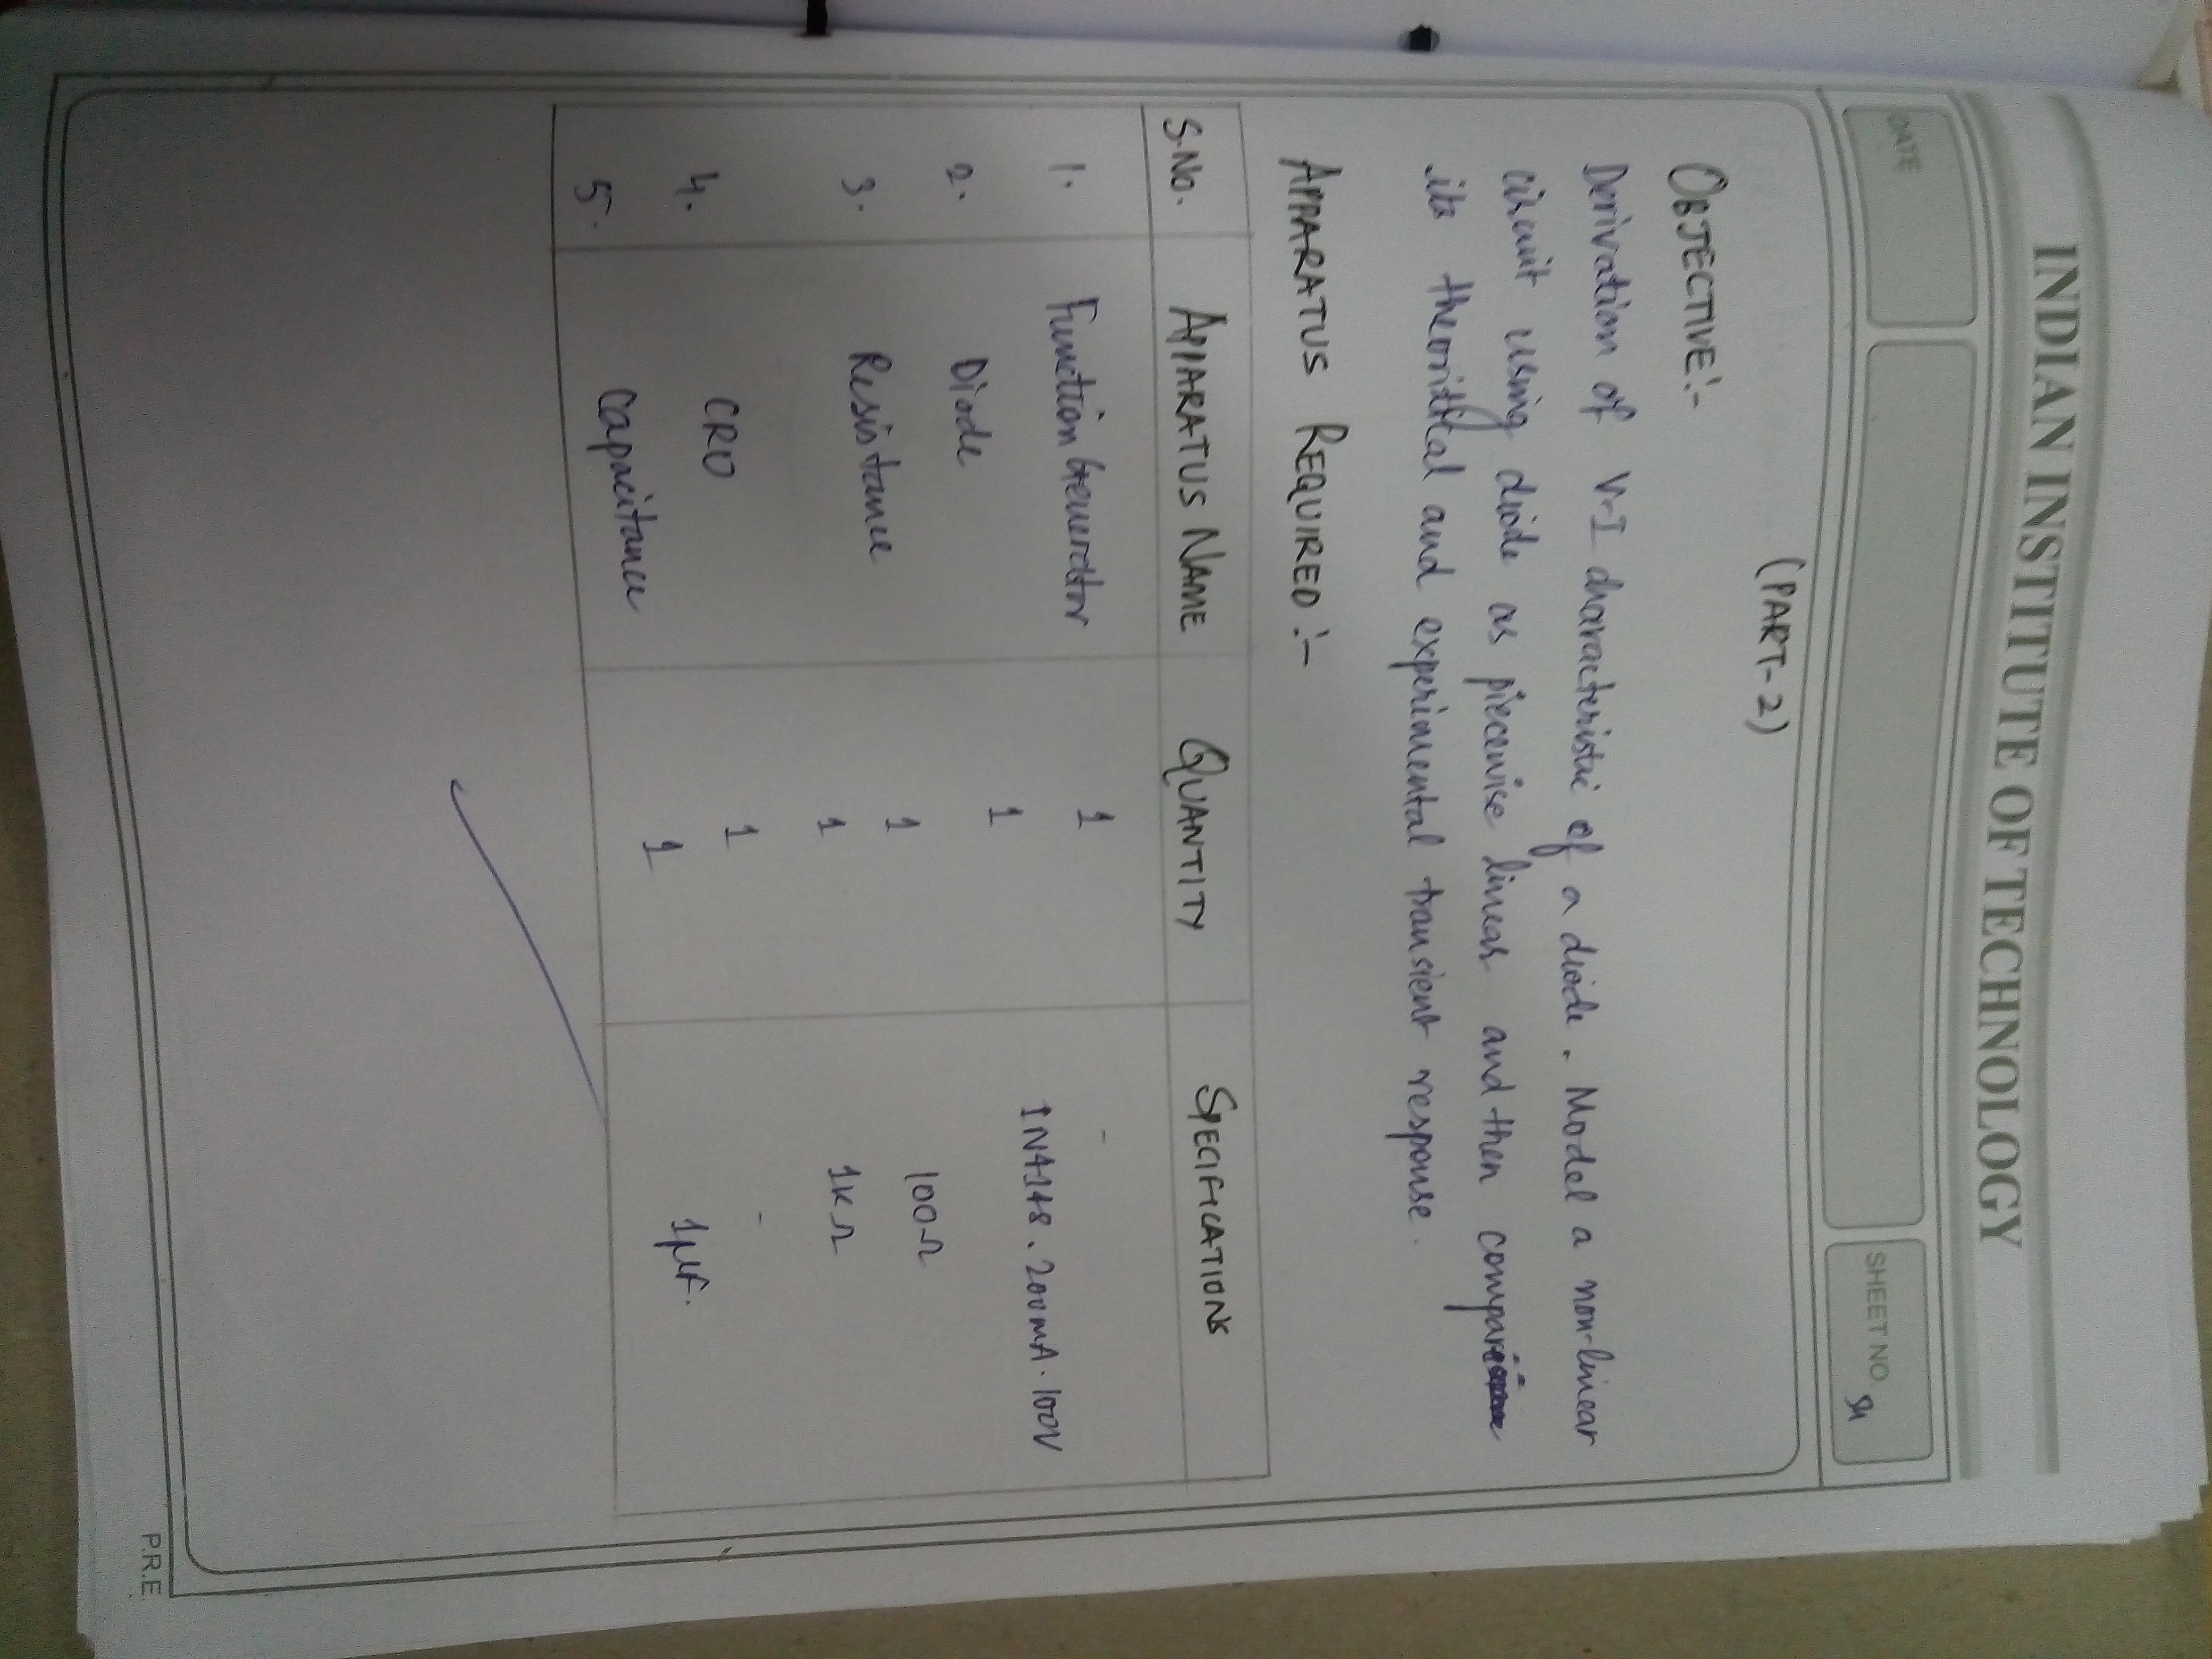 INDIAN INSTITUTE OF TECHNOLOGY
DATE
SHEET NO. 54
(PART-2)
OBJECTIVE:-
Derivation of V-I characteristic of a diode. Model a non-linear
circuit using diode as piecewise linear and then compare
its theoritical and experimental transient response.
APPARATUS REQUIRED:-
S.NO. APPARATUS NAME QUANTITY SPECIFICATIONS
1. Function Generator 1 -
2. Diode 1 1N4148. 200mA. 100V
3. Resistance 1 100Ω
1 1KΩ
4. CRO 1 -
5. Capacitance 1 1μF.
P.R.E.